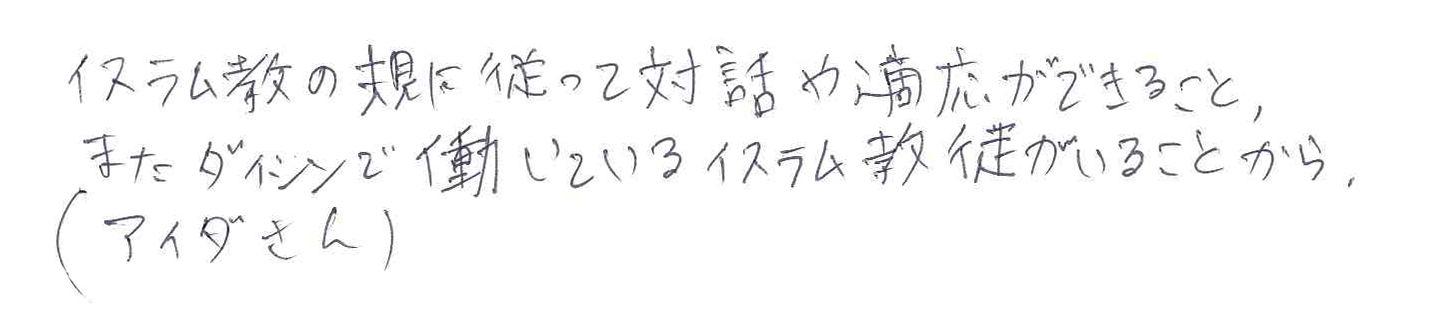 イスラム教の規に従って対話や適応ができること,
またダイシンで働いているイスラム教徒がいることから.
(アイダさん)